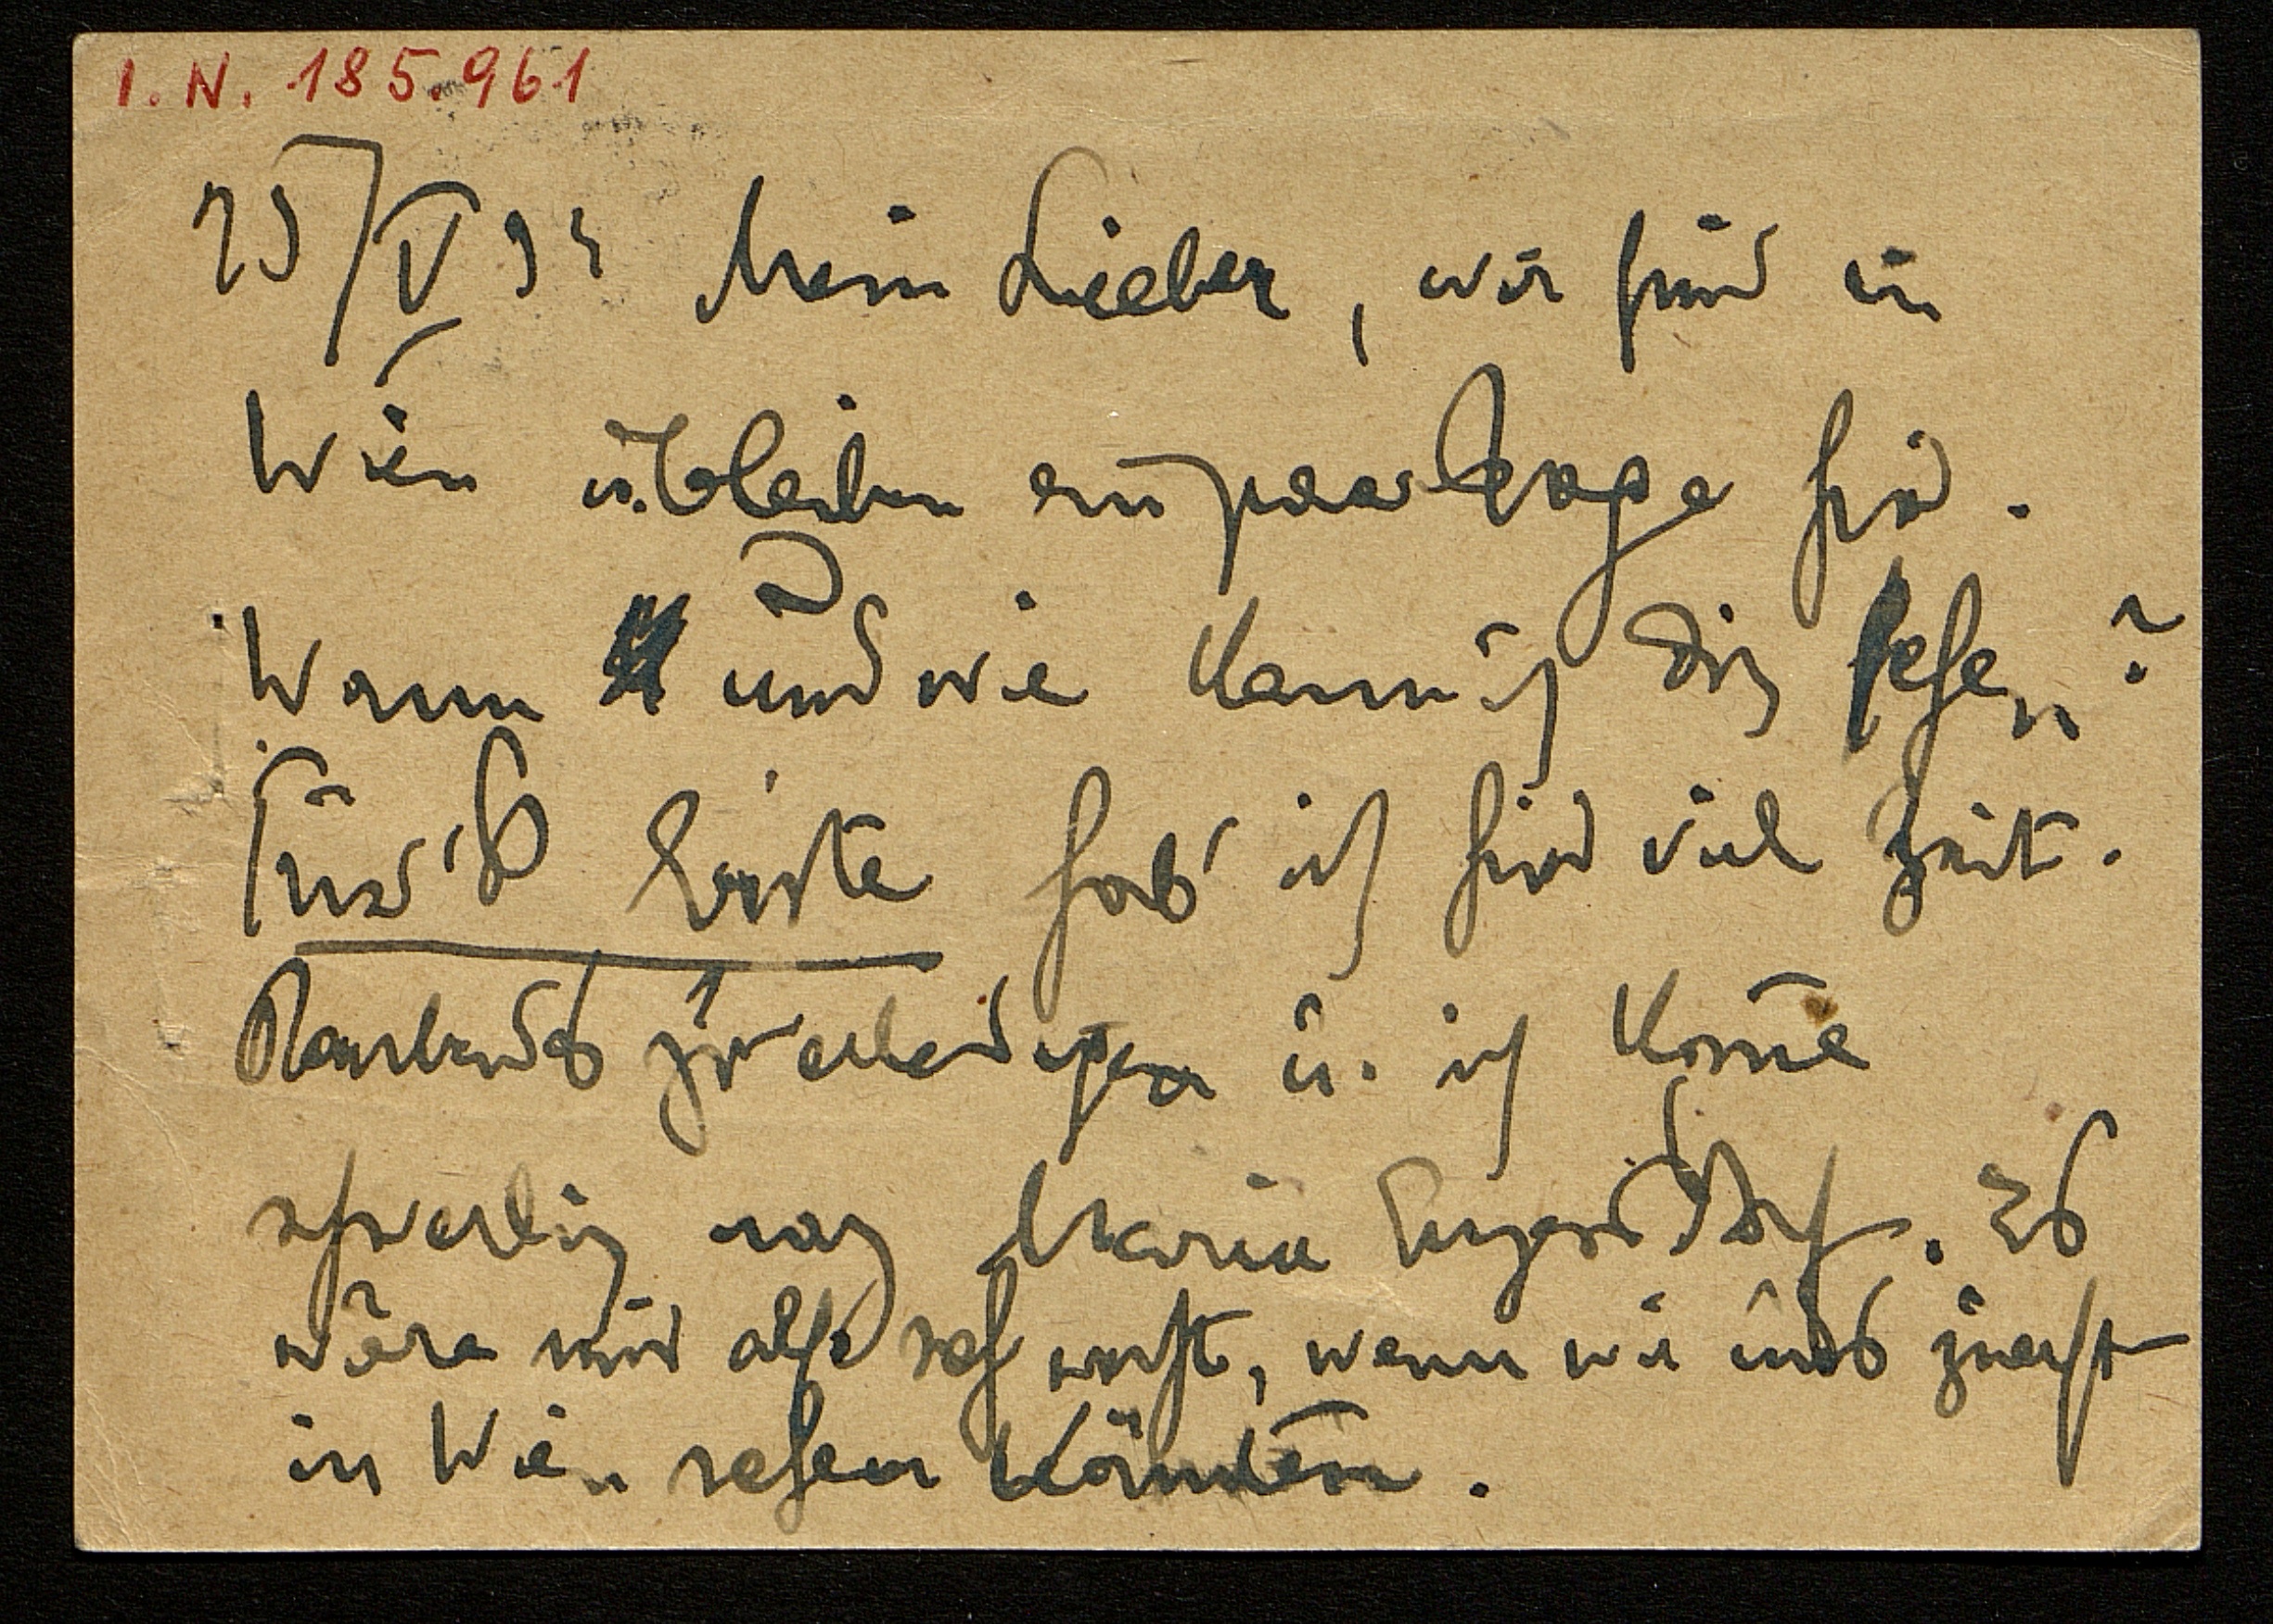 I. N. 185.961
25/V 34 Mein Lieber, wir sind in
Wien u. bleiben ein paar Tage hier.
Wann und wie kann ich Dich sehen?
Fürs Erste hab' ich hier viel Zeit.
zu erledigen u. ich kom̄e
schwerlich nach Maria Enzersdorf. Es
wäre mir also sehr recht, wenn wir uns zuerst
in Wien sehen könnten.